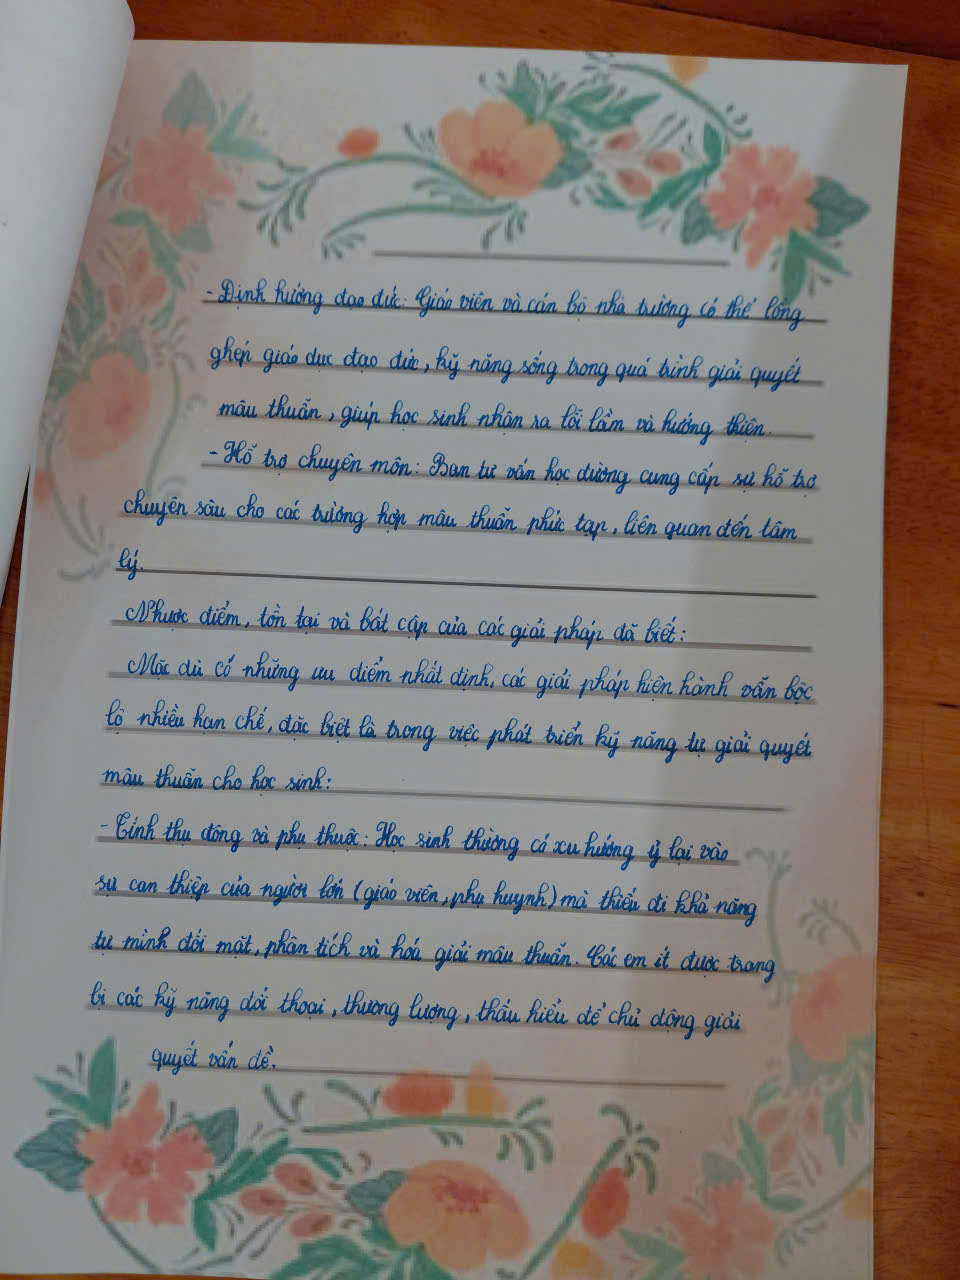 - Định hướng đạo đức: Giáo viên và cán bộ nhà trường có thể lồng
ghép giáo dục đạo đức, kỹ năng sống trong quá trình giải quyết
mâu thuẫn, giúp học sinh nhận ra lỗi lầm và hướng thiện.
- Hỗ trợ chuyên môn: Ban tư vấn học đường cung cấp sự hỗ trợ
chuyên sâu cho các trường hợp mâu thuẫn phức tạp, liên quan đến tâm
lý.
Nhược điểm, tồn tại và bất cập của các giải pháp đã biết:
Mặc dù có những ưu điểm nhất định, các giải pháp hiện hành vẫn bộc
lộ nhiều hạn chế, đặc biệt là trong việc phát triển kỹ năng tự giải quyết
mâu thuẫn cho học sinh:
- Tính thụ động và phụ thuộc: Học sinh thường có xu hướng ỷ lại vào
sự can thiệp của người lớn (giáo viên, phụ huynh) mà thiếu đi khả năng
tự mình đối mặt, phân tích và hoá giải mâu thuẫn. Các em ít được trang
bị các kỹ năng đối thoại, thương lượng, thấu hiểu để chủ động giải
quyết vấn đề.